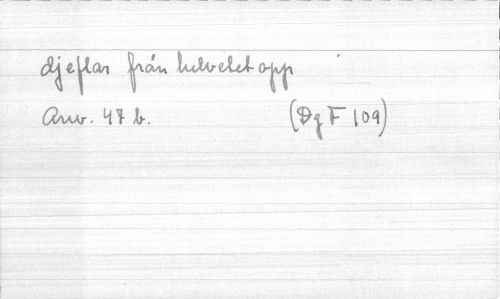 djeflar från helvetet opp
Anv. 47 b. (Dg F 109)